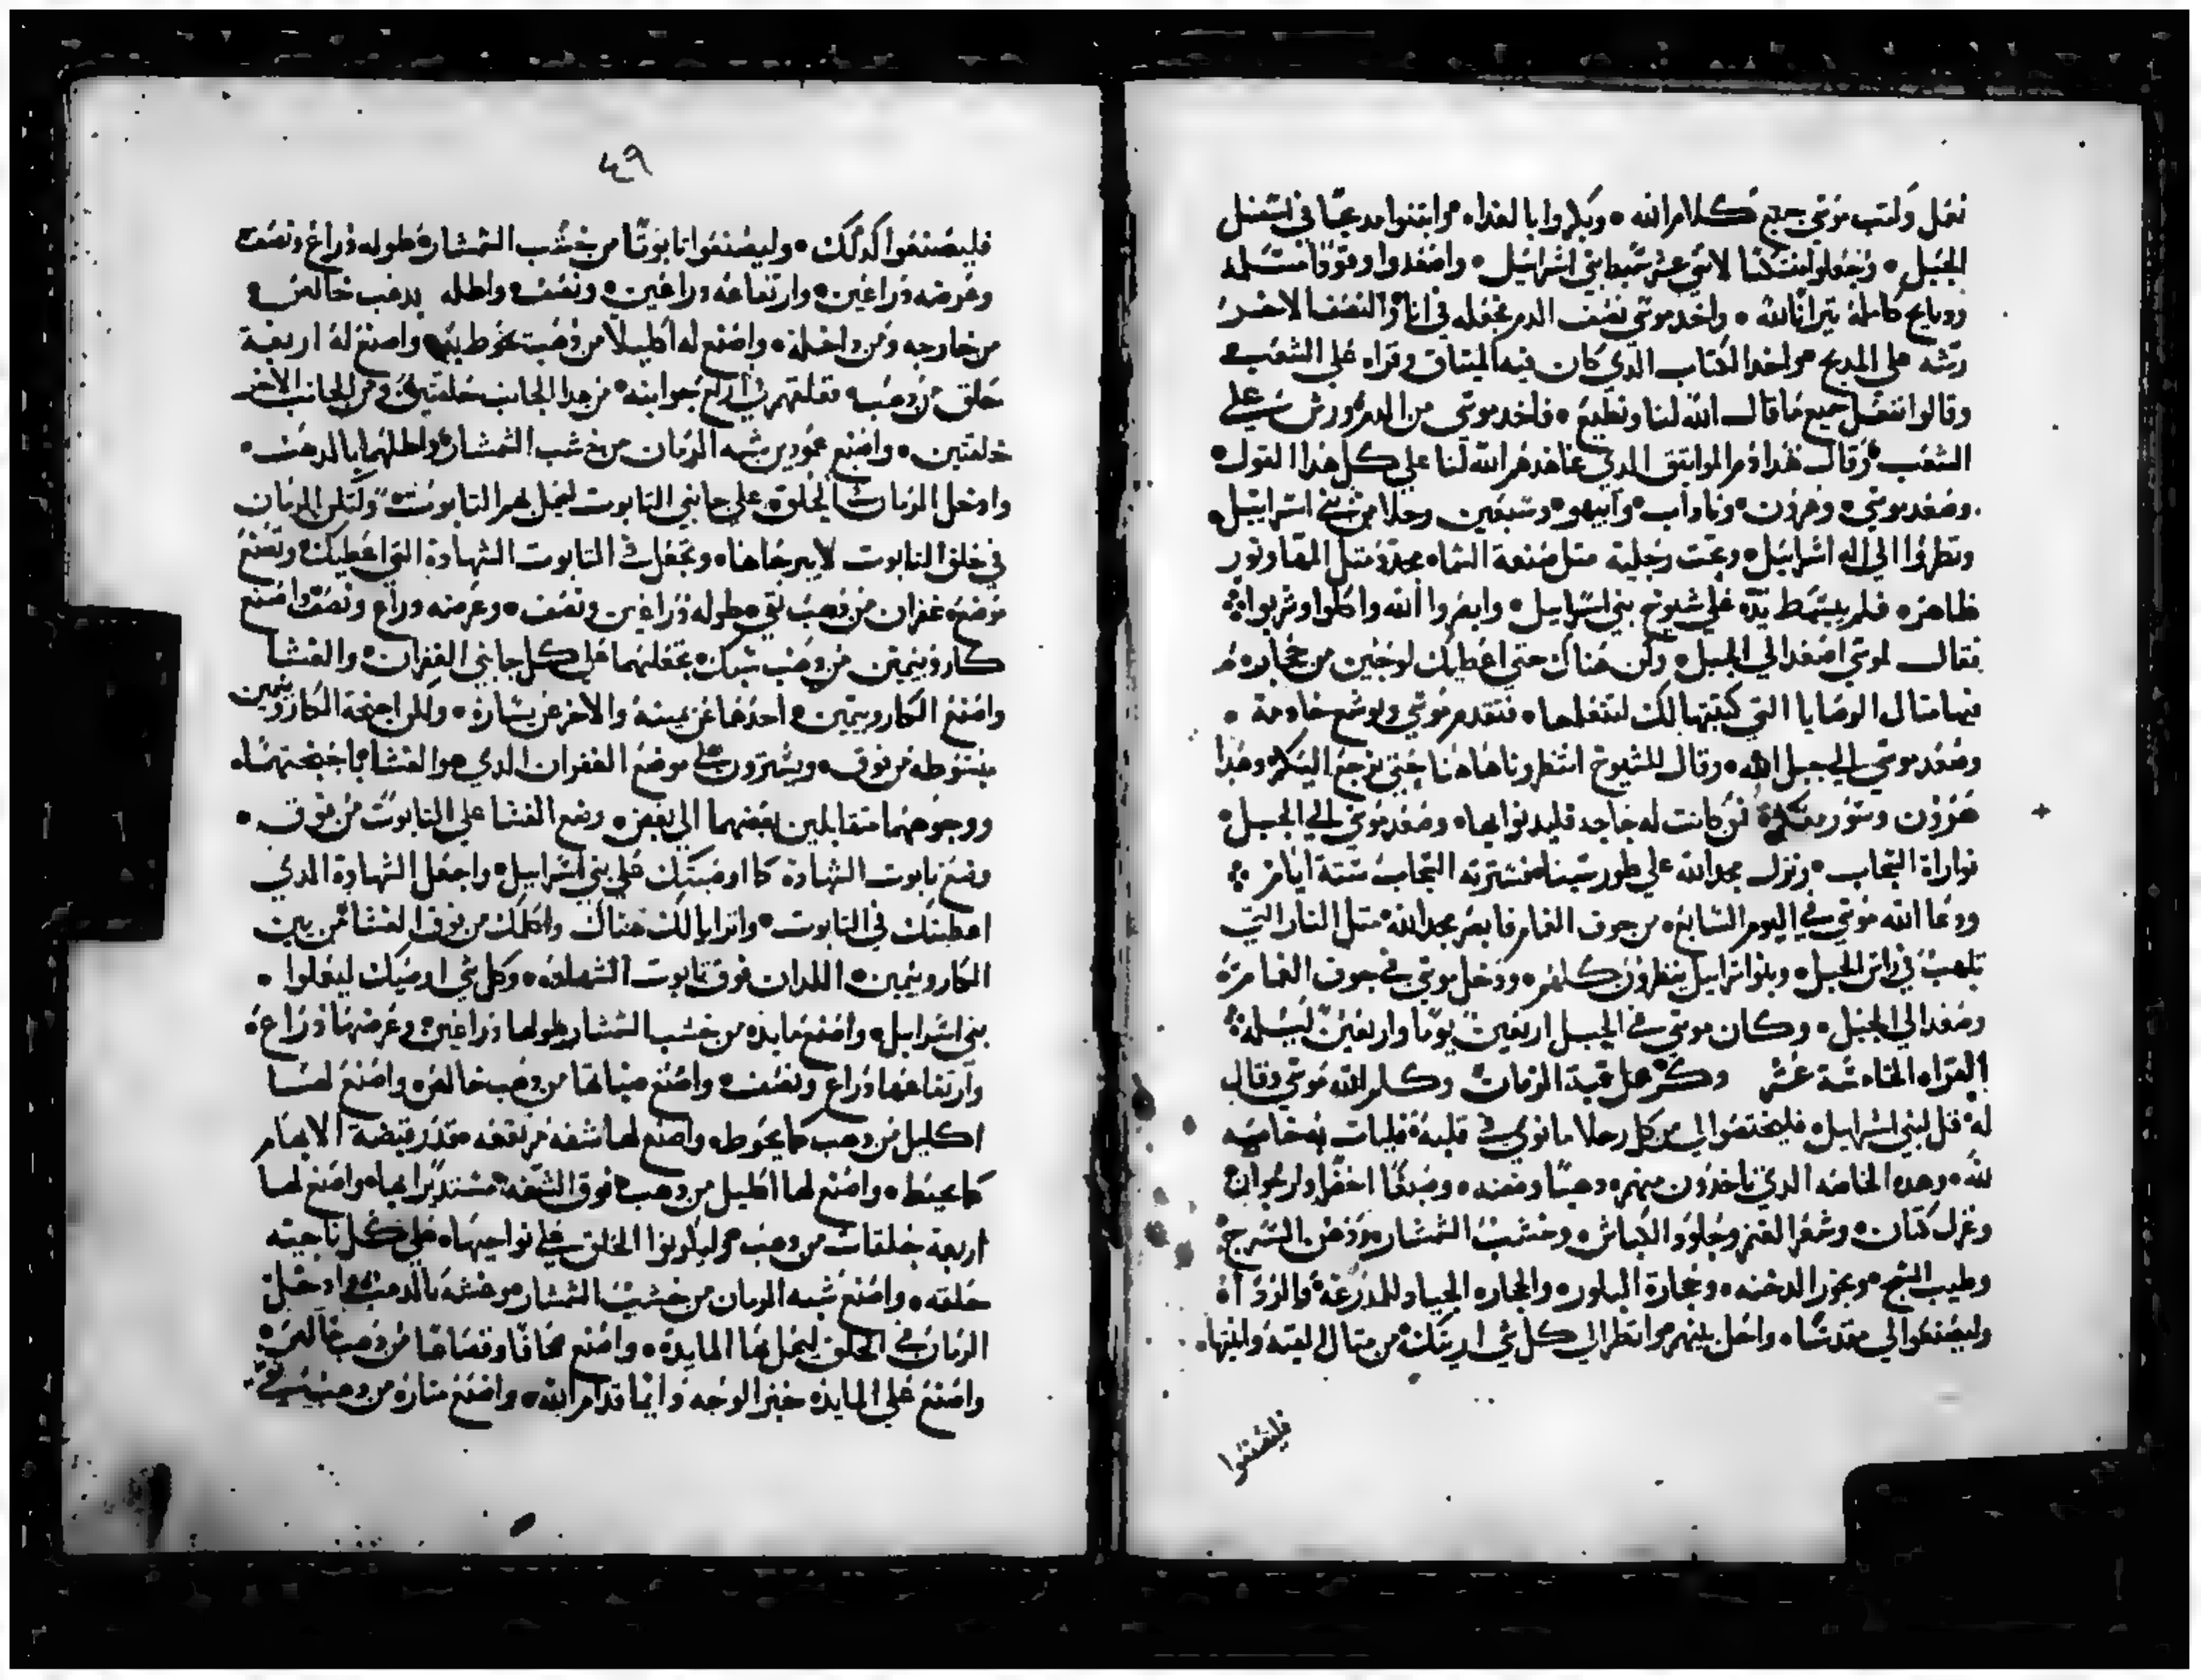 نعمل وكتب موسي جميع كلام الله • وبكروا بالغداه وابتنوا مدبحا في اسفل
الجبل • وجعلوا لاثني عشر سبط بني اسرائيل • واصعدوا وقودا مسلمة
ودبايح كاملة لله • واخد موسي نصف الدم فجعله في انا والنصف الاخر
رشه علي المدبح واخد الكتاب الدي كان فيه الميتاق وقراه علي الشعب
وقالوا نفعل جميع ما قال الله لنا ونطيع • فاخد موسي من الدم ورش علي
الشعب وقال هدا دم المواتيق الدي عاهدهم الله لنا علي كل هدا القول
وصعد موسي • وهرون • وناداب • وابيهو • وسبعين رجلا من بني اسراييل
ونظروا الي اله اسراييل • وتحت رجليه متل صنعة السماء متل نور
ظاهر • فلم يبسط يده علي شيوخ بني اسراييل • وابصروا الله واكلوا وشربوا
فقال لموسي اصعد الي الجبل • وكن هناك حتي اعطيك لوحين من حجاره
فيها متال الوصايا التي كتبتها لك لتتعلمها • فتقدم موسي ويوشع خادمه •
وصعد موسي الي جبل الله • وقال للشيوخ انتظرونا هاهنا حتي نرجع اليكم وهدا
هرون وحور معكم من كانت له حاجه فليدنوا بها • وصعد موسي الي الجبل
فواراة السحاب • ونزل مجد الله علي طور سينا فسترته السحاب ستة ايام
ودعا الله موسي في اليوم السابع • من جوف الغمام فابصر مجد الله متل النار التي
تلهب في راس الجبل • وبنوا سراييل ينظرون كلهم • ودخل موسي في جوف الغمامة
وصعد الي الجبل • وكان موسي في الجبل اربعين يوما واربعين ليلة
القراه الخامسة عشر وكر عمل قبة الزمان وكلم الله موسي وقال
له قل لبني اسراييل • فليختصوا لي من كل رجلا ما نوي في قلبه فليات به خاصه
لله • وهده الخاصه الدي تاخدون منهم • دهبا وفضه • وصبغا اخضر وارجوان
وغزل كتان • وشعر الغنم وجلود الكباش • وخشب الشمشار ودهن السرج
وطيب • وبخور الدخنه • وحجارة البلور • والحجاره الجياد للمدرعة والرداه
وليصنعوا لي مقدسا • واحل بينهم وانظر الي كل شي اريتك من متال القبة وانيتها •
فليصنعوا
٤٩
فليصنعوا كدلك • وليصنعوا تابوتا من خشب الشمشار طوله دراع ونصف
وعرضه دراعين • وارتفاعه دراعين ونصف واطله بدهب خالص
من خارجه ومن داخله • واصنع له اكليلا من دهب تحوط به واصنع له اربعة
حلق من دهب فعلقهم في اربع جوانبه • من هدا الجانب حلقتين ومن الجانب الاخر
حلقتين • واصنع عمودين شبه الرمان من خشب الشمشار واطلهما بالدهب •
وادخل الرمان الحلق علي جانبي التابوت ليحمل بهم التابوت ولتكن الرمان
في حلق التابوت لا يبرحاها • وتجعل في التابوت الشهادة التي اعطيك وتصنع
موضع غفران من دهب نقي • طوله دراعين ونصف • وعرضه دراع ونصف واصنع
كاروبيمتين من دهب سبك تجعلهما علي كل جانبي الغفران والغشا
واصنع الكاروبيمتين احدها عن يمينه والاخر عن يساره • ولتكن اجنحة الكاروبيمين
مبسوطه من فوق • ويسترون علي موضع الغفران الدي هو الغشا باجنحتهما •
ووجوههما متقابلين بعضهما الي بعض • وضع الغشا علي التابوت من فوق •
وضع تابوت الشهادة كما اوصيتك علي بني اسراييل • واجعل الشهادة الدي
اعطيتك في التابوت • واترايا لك هناك واكلمك من فوق الغشا من بين
الكاروبيمين • اللدان فوق تابوت الشهاده • وكل شي اوصيك ليفعلوا •
بني اسراييل • واصنع مايده من خشب الشمشار طولها دراعين وعرضها دراع
وارتفاعها دراع ونصف واصنع من دهب خالص واصنع لها
اكليل من دهب كما يحوط • واصنع لها شفه مرتفعه مقدار قبضة الابهام
كما يحيط • واصنع لها اكليل من دهب فوق الشفه مستديرا بها • واصنع لها
اربعة حلقات من دهب وليكونوا الحلق علي نواحيها • علي كل ناحيته
حلقه • واصنع شبه الرمان من خشب الشمشار وغشه بالدهب وادخل
الرمان في الحلق ليحمل بها المايده • واصنع صحافا وقصاعا من دهب خالص
واصنع علي المايده خبز الوجه دايما قدام الله • واصنع مناره من دهب نقي